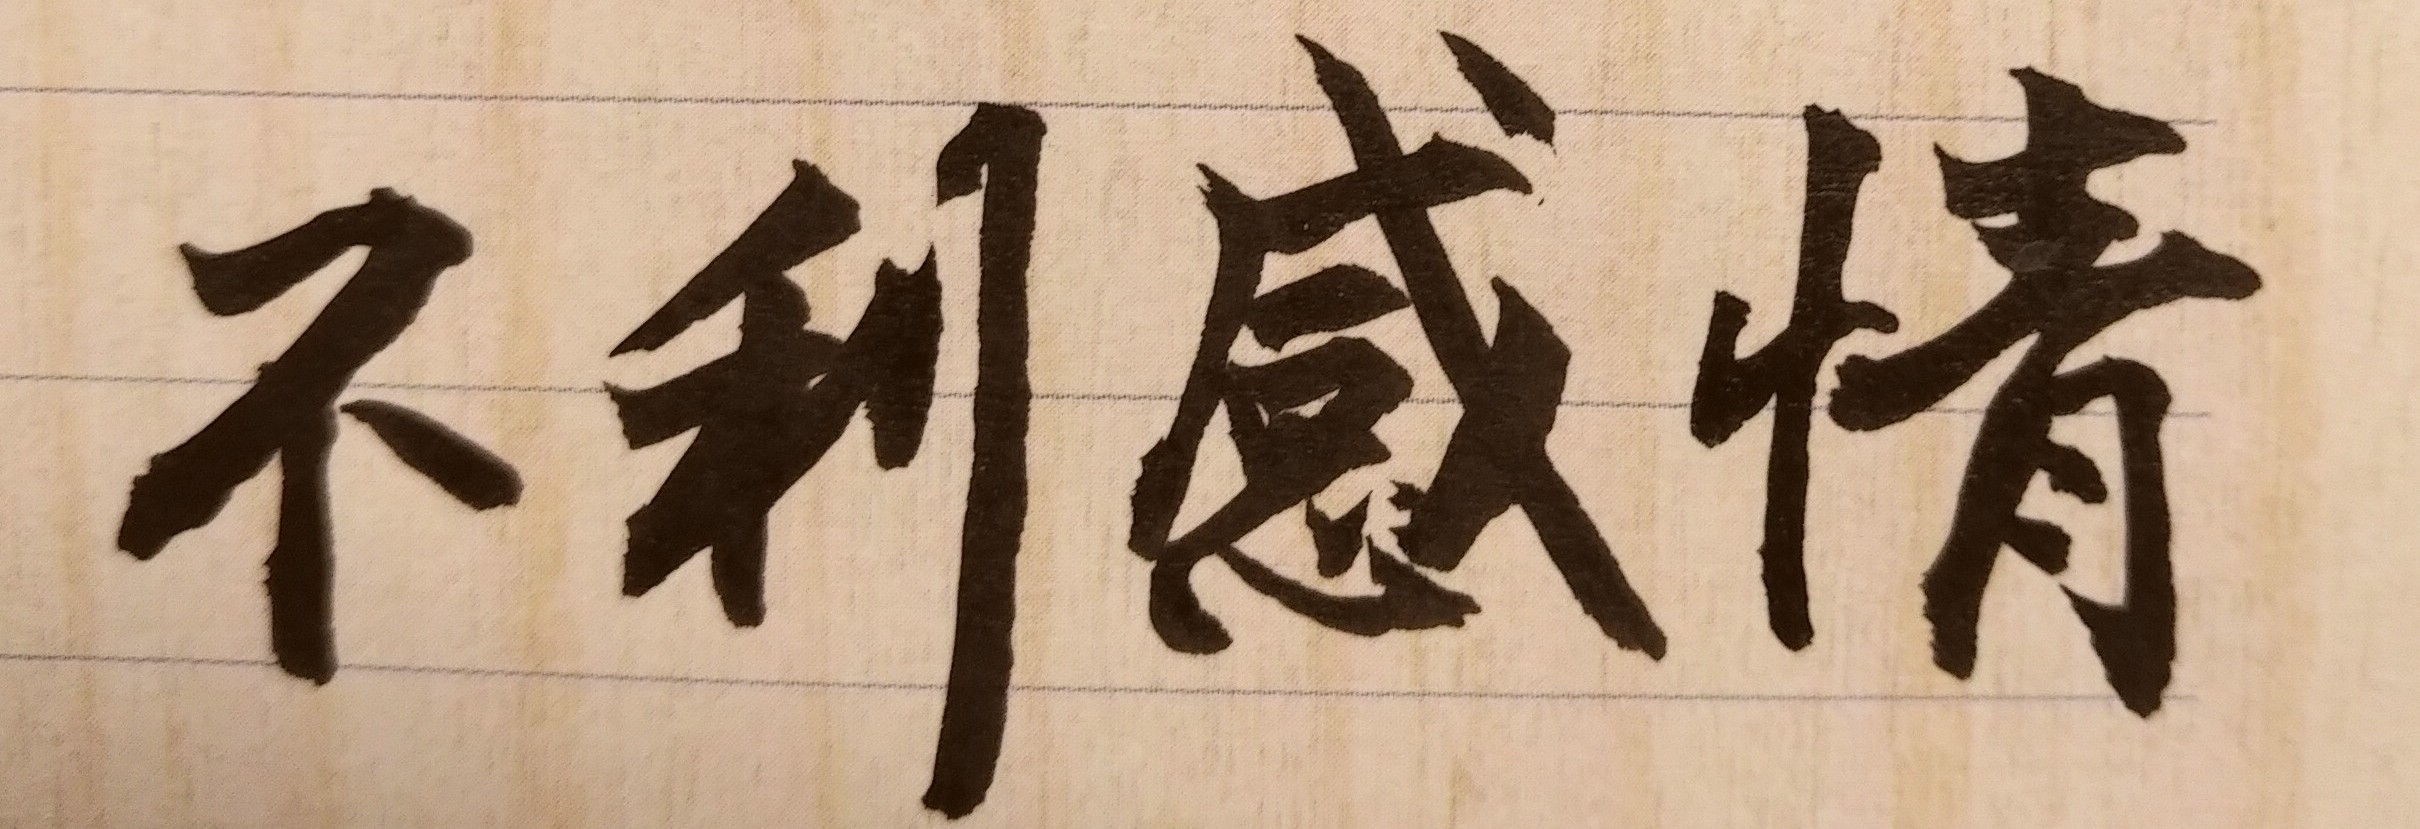 不利感情